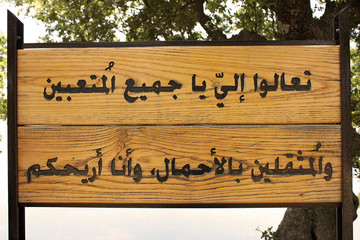 تعالوا إليّ يا جميع اُلمتعبين
واُلمثقلين بالأحمال، وأنا أريحكم